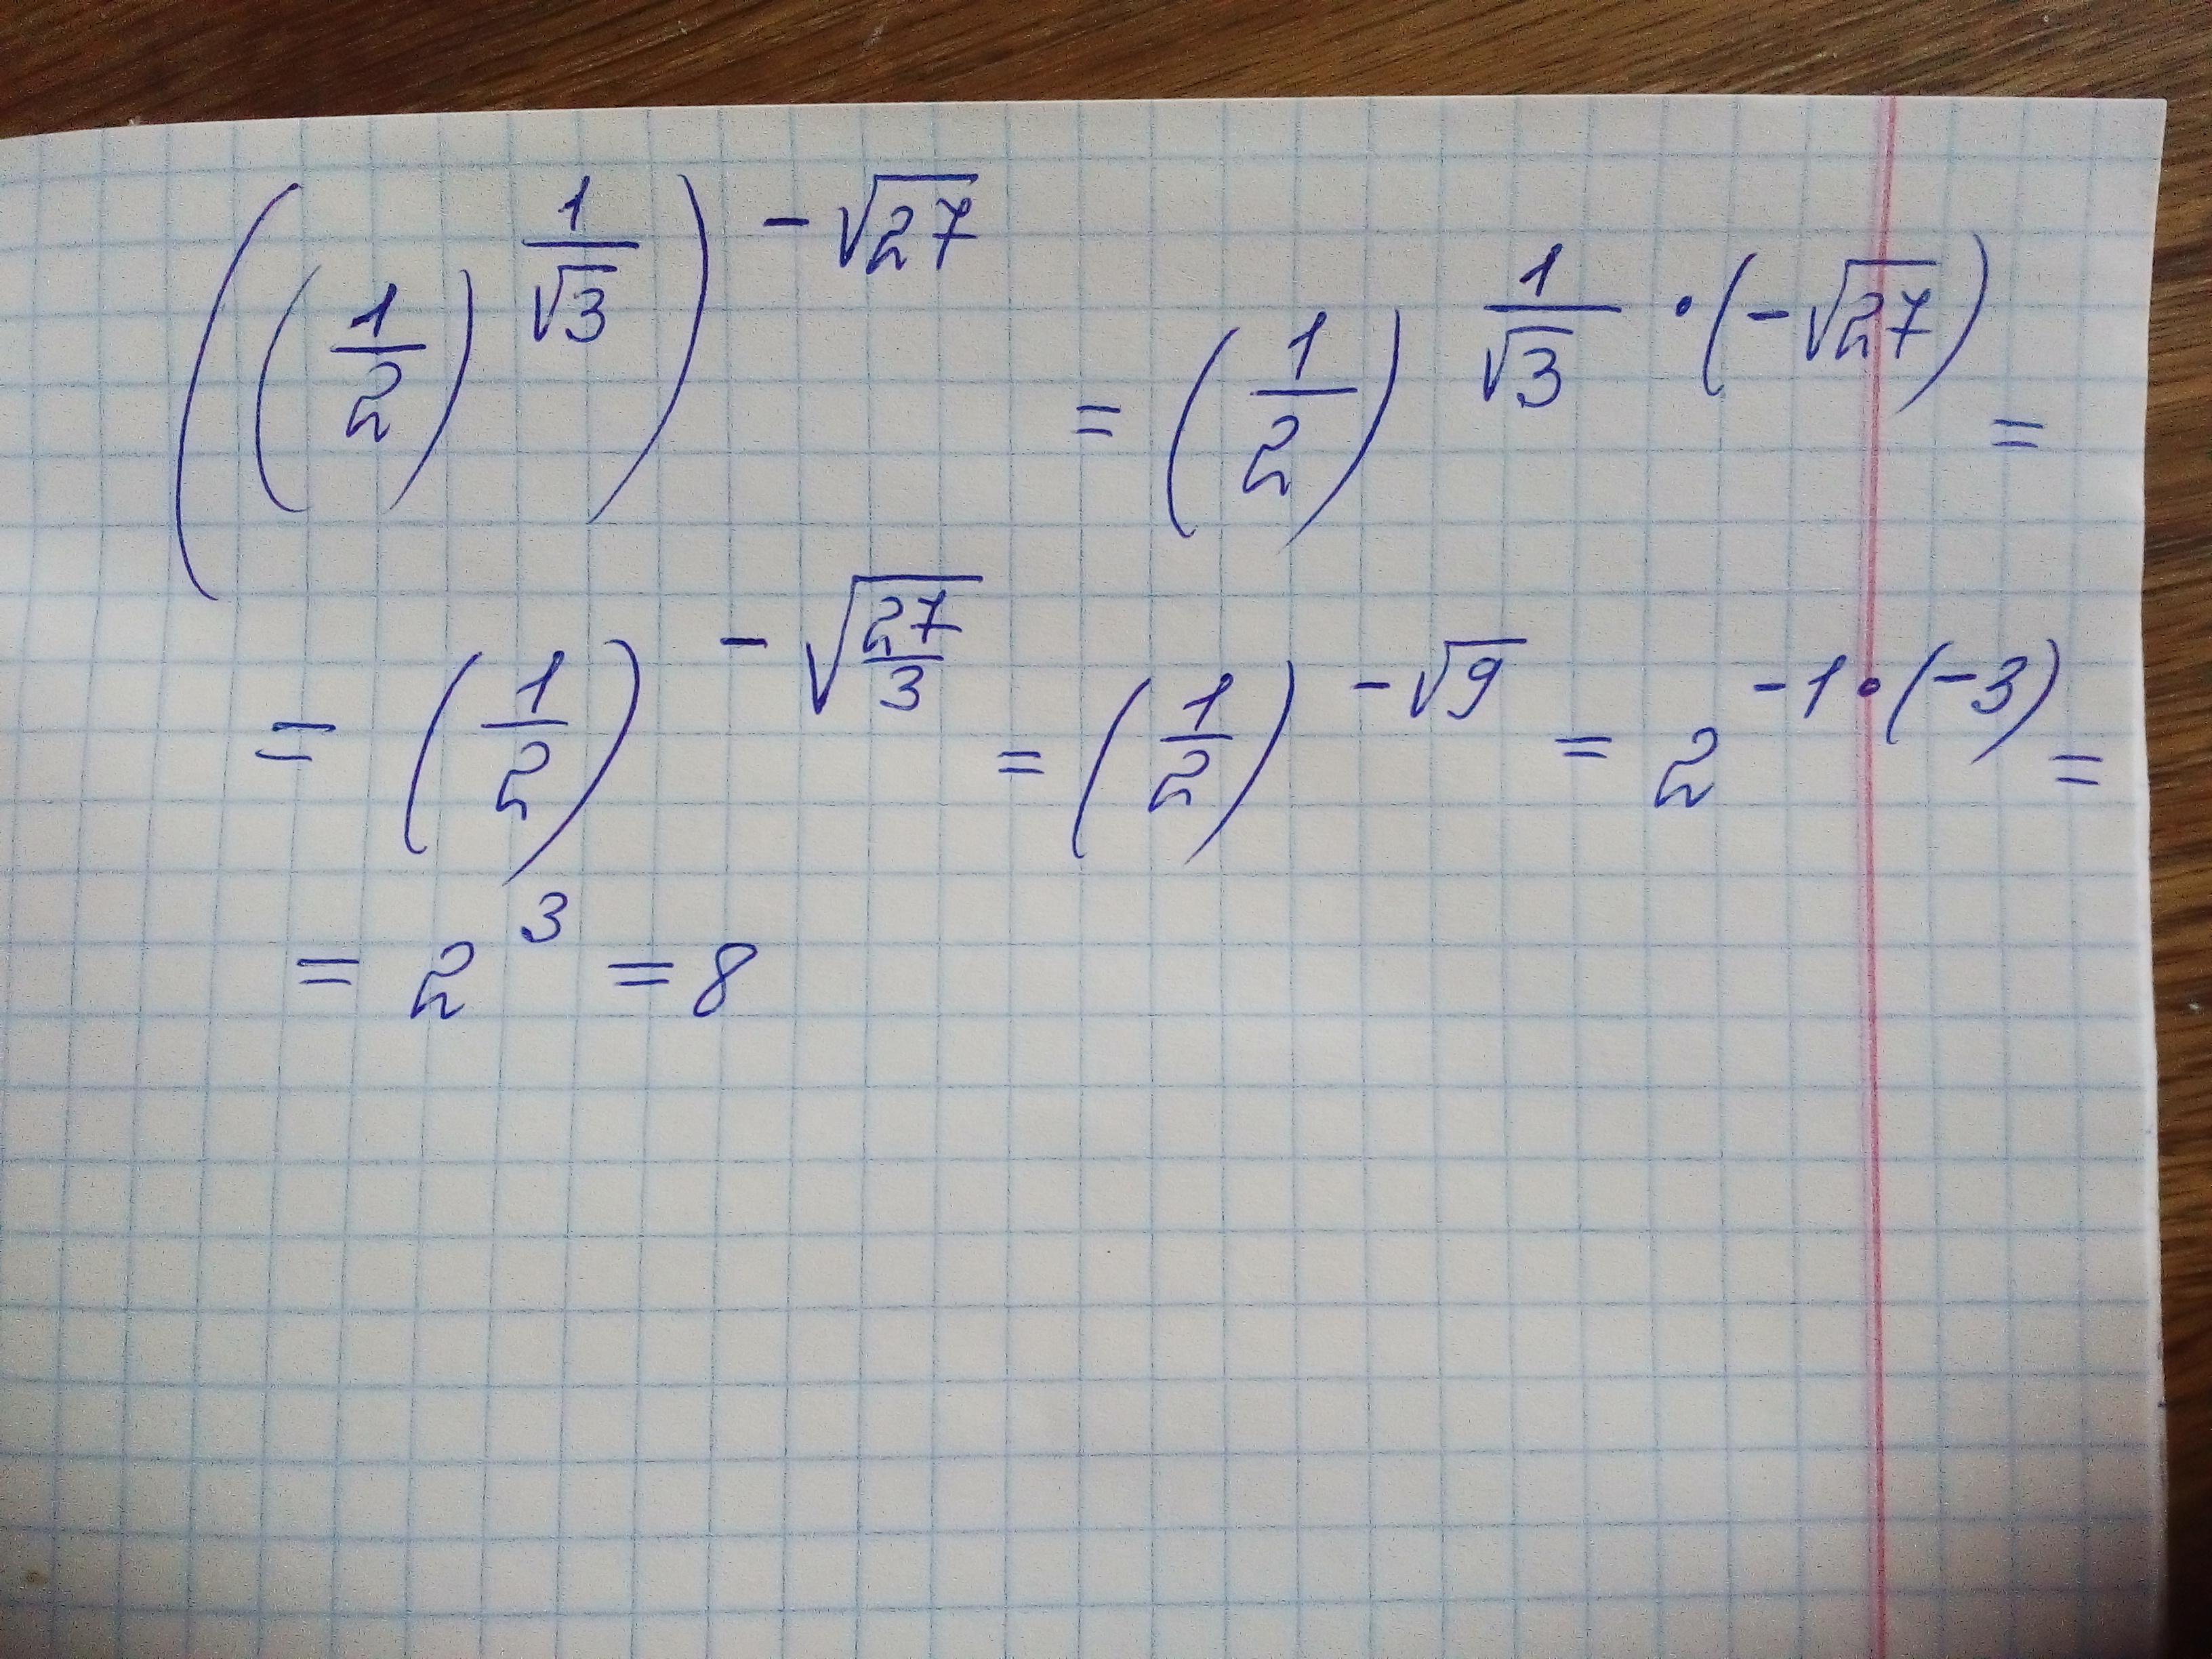 ((1/2)^(1/√3))^(-√27) = (1/2)^(1/√3 · (-√27)) =
= (1/2)^(-√(27/3)) = (1/2)^(-√9) = 2^(-1·(-3)) =
= 2^3 = 8